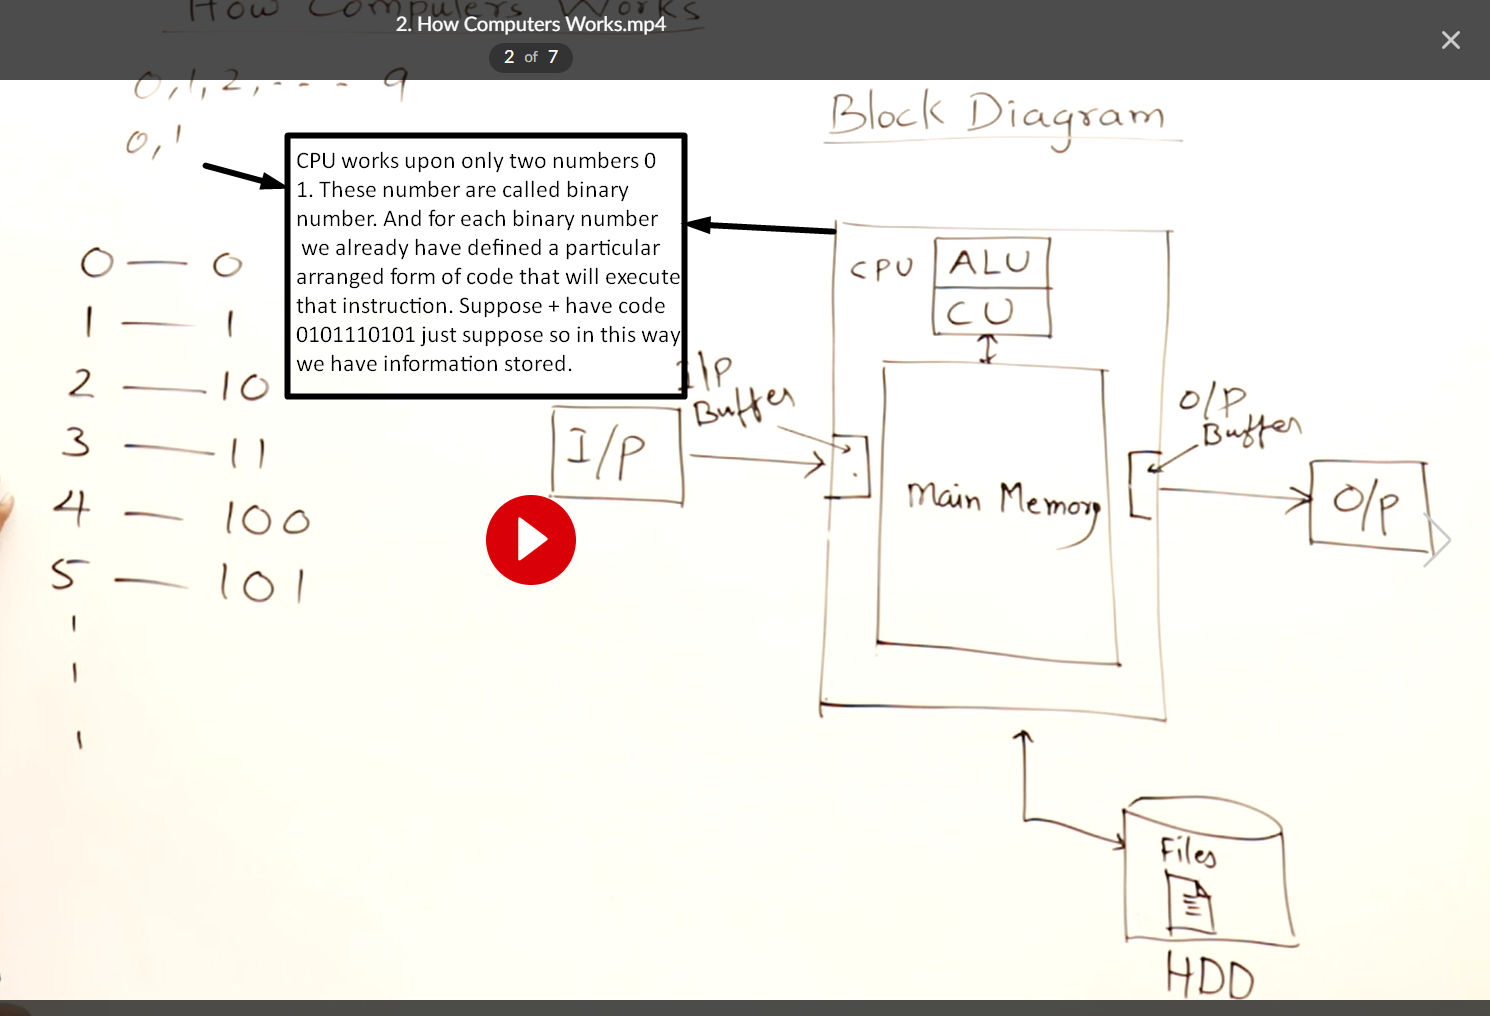 How Computers Works
2. How Computers Works.mp4
2 of 7
0,1,2,--- 9
0,1
Block Diagram
CPU works upon only two numbers 0
1. These number are called binary
number. And for each binary number
we already have defined a particular
arranged form of code that will execute
that instruction. Suppose + have code
0101110101 just suppose so in this way
we have information stored.
0 — 0
1 — 1
2 — 10
3 — 11
4 — 100
5 — 101
CPU
ALU
CU
I/P
Buffer
I/P
Main Memory
O/P
Buffer
O/P
Files
HDD